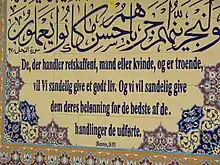 ولنجزينهم أجرهم بأحسن ما كانوا يعملون
De, der handler retskaffent, mand eller kvinde, og er troende,
vil Vi sandelig give et godt liv. Og vi vil sandelig give
dem deres belønning for de bedste af de
handlinger de udførte.